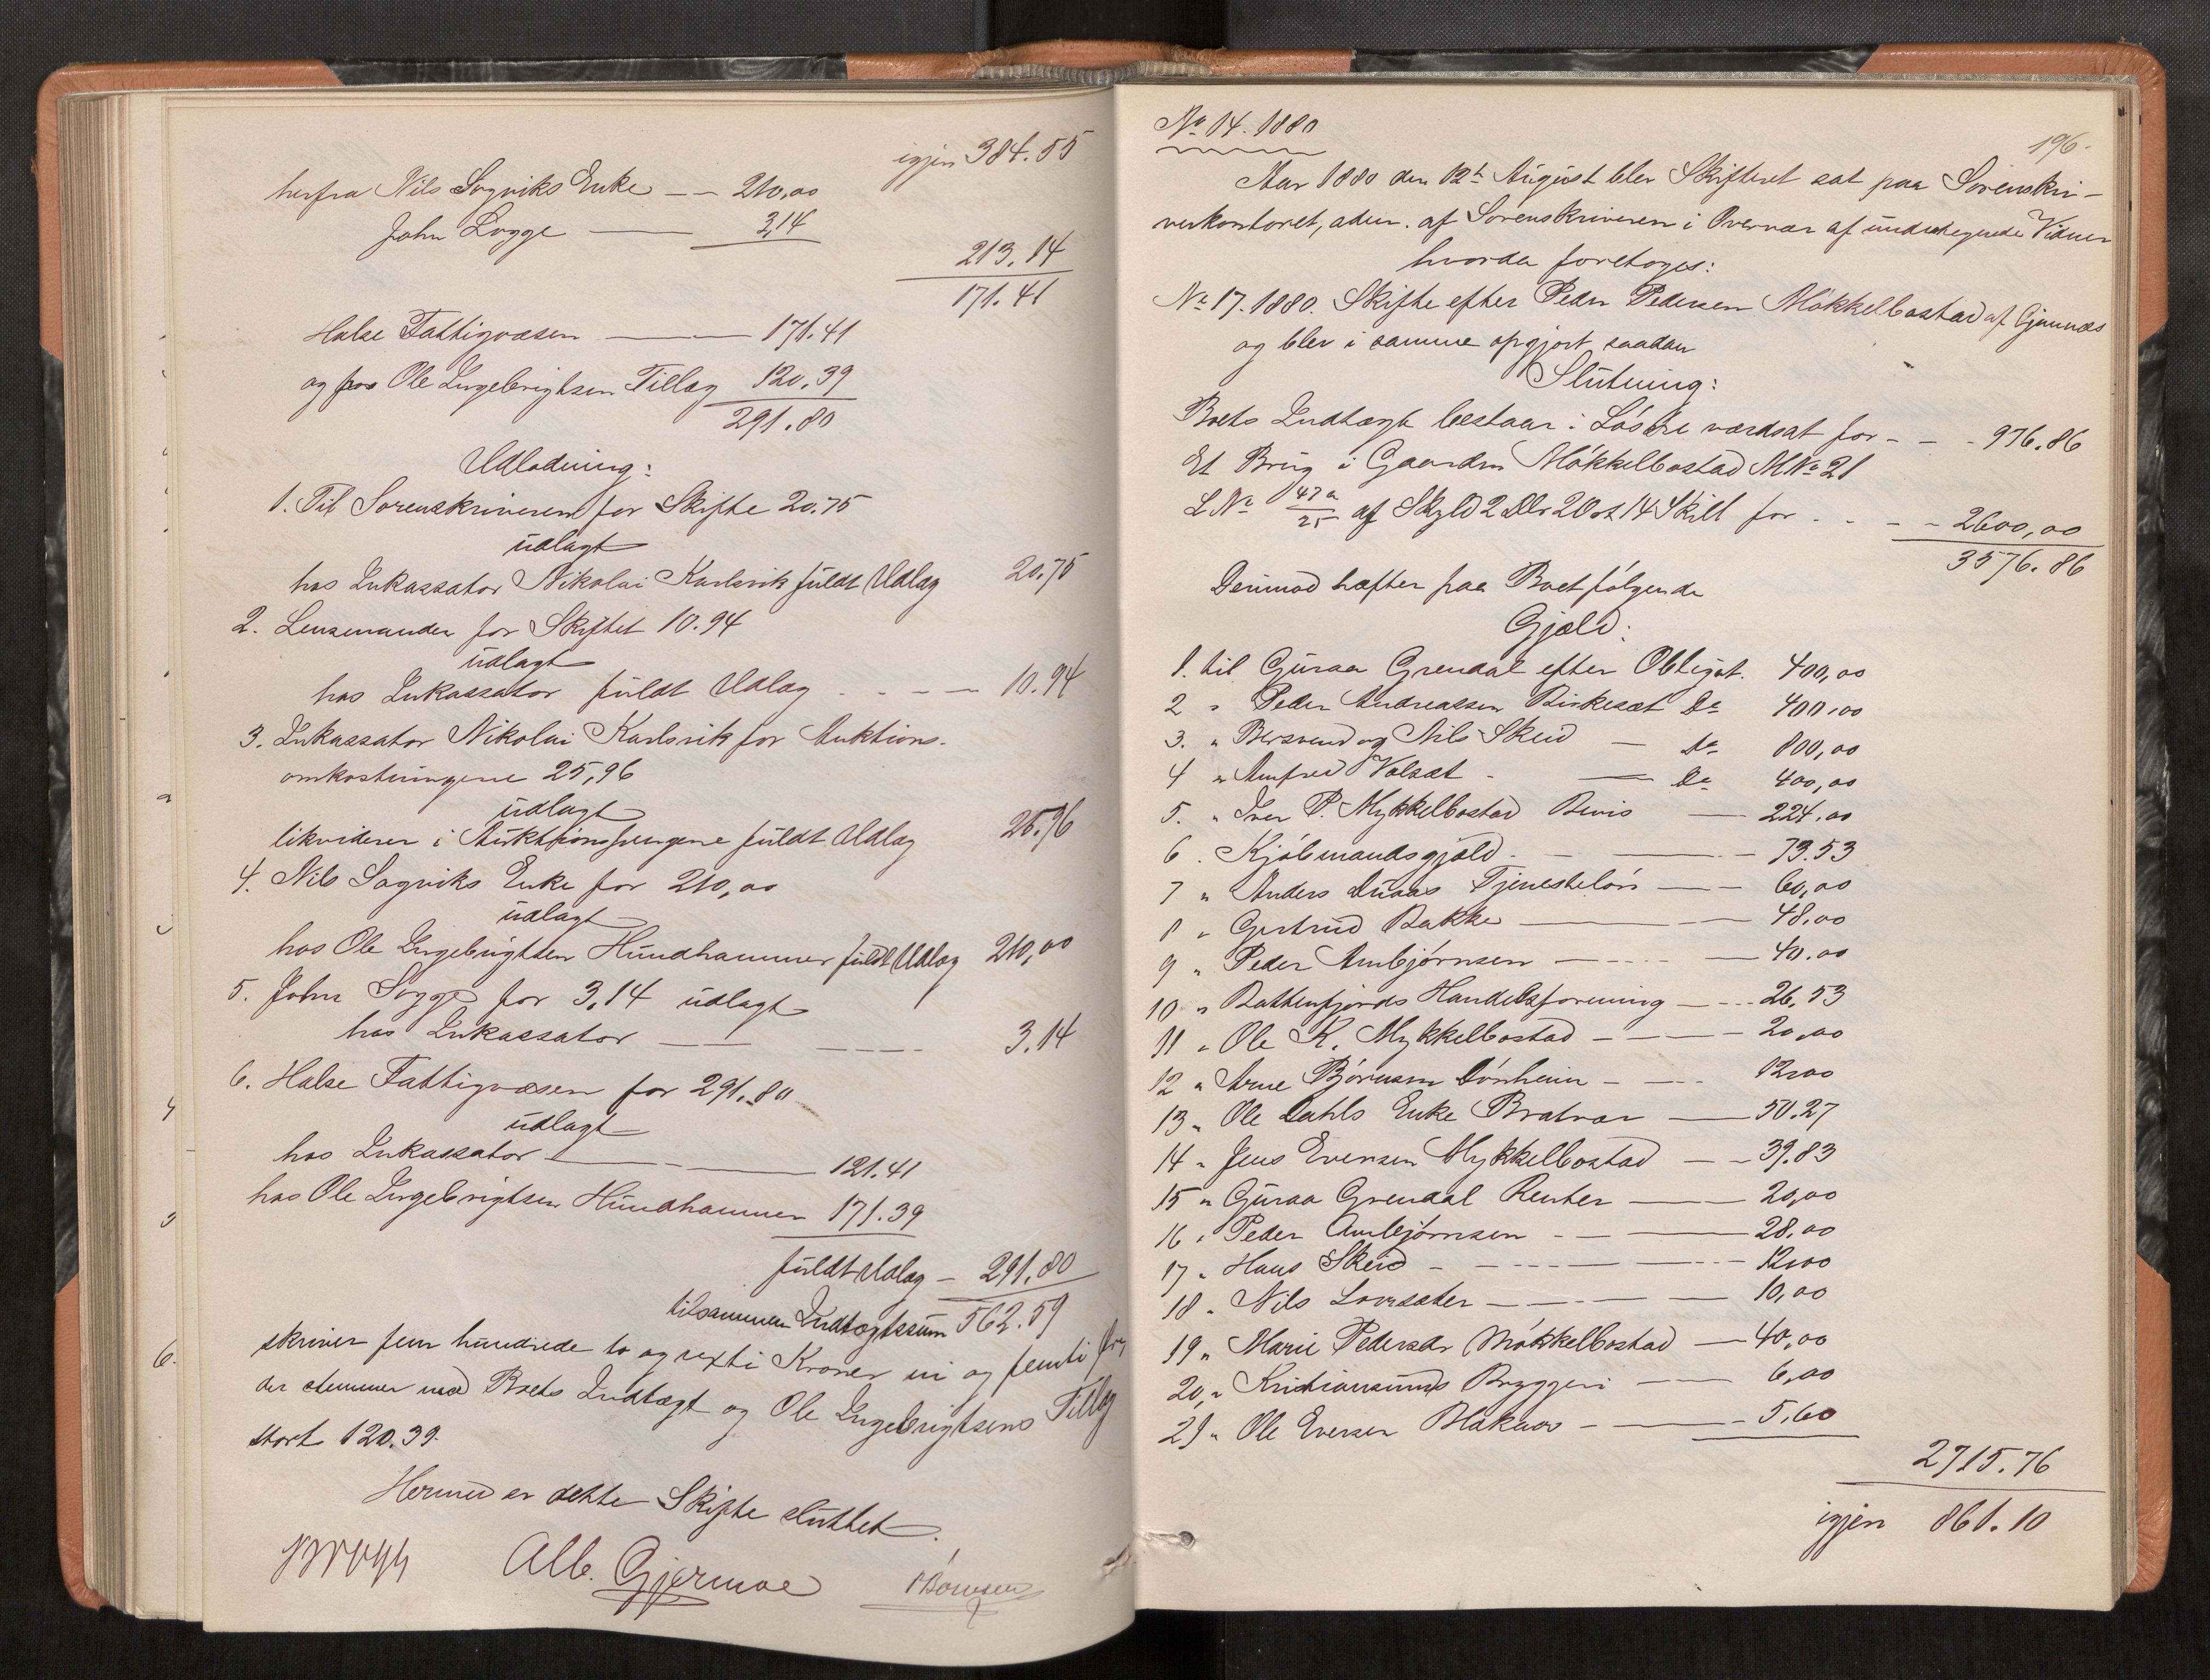 igjen 384.55
herfra Nils Sogviks Enke — 210,00
John Sogge — 3,14
213.14
171.41
Halse Fattigvæsen — 171.41
og fra Ole Ingebrigtsen Tillæg 120.39
291.80
Udlodning:
1. Til Sorenskriveren for Skifte 20.75
udlagt
hos Inkassator Nikolai Karlsvik fuldt Udlæg 20.75
2. Lensmanden for Skiftet 10.94
udlagt
hos Inkassator fuldt Udlæg - - - — 10.94
3. Inkassator Nikolai Karlsvik for Auktions-
omkostningene 25,96
udlagt
likviderer i Auktionspengene fuldt Udlæg 25.96
4. Nils Sagviks Enke for 210,00
udlagt
hos Ole Ingebrigtsen Hundhammer fuldt Udlæg 210,00
5. John Sogge for 3,14 udlagt
hos Inkassator — - - - - 3.14
6. Halse Fattigvæsen for 291.80
udlagt
hos Inkassator — 121.41
hos Ole Ingebrigtsen Hundhammer 171.39
fuldt Udlæg — 291.80
tilsammen Indtægtssum 562.59
skriver fem hundrede to og sexti Kroner ni og femti
der stemmer med Boets Indtægt og Ole Ingebrigtsens Tillæg
stort 120.39.
Hermed er dette Skifte sluttet.
Alb. Gjermoe
No 14. 1880
196.
Aar 1880 den 12te August blev Skifteret sat paa Sorenskri-
verkontoret, adm. af Sorenskriveren i Overvær af undertegnede Vidner
hvorda foretoges:
No 17. 1880. Skifte efter Peder Pedersen Møkkelbostad af Gjemnæs
og blev i samme opgjort saadan
Slutning:
Boets Indtægt bestaar i Løsøre værdsat for - - - 976.86
Et Brug i Gaarden Møkkelbostad MNo 21
LNo 47a/25 af Skyld 2 Dlr 2 Ort 14 Skill for - - - 2600,00
3576.86
Derimod hæfter paa Boet følgende
Gjæld:
1. til Guraa Grendal efter Obligat. 400,00
2 " Peder Andreassen Birkesæt Do 400,00
3. " Bersvend og Nils Skeid — Do 800,00
4 " Arnfred Valsæt - — Do 400,00
5. " Iver P. Mykkelbostad Bevis — 224.00
6 . Kjøbmandsgjæld - — 73.53
7 " Anders Duaas Tjenesteløn — 60,00
8 " Gjertrud Bakke — 48.00
9 " Peder Arnbjørnsen — 40.00
10 " Battenfjords Handelsforening — 26,53
11 " Ole K. Mykkelbostad — 20,00
12 " Arne Bjørnsen Dønheim — 12,00
13 " Ole Dahls Enke Bratvær — 50.27
14 " Jens Evensen Mykkelbostad — 39.83
15 " Guraa Grendal Renter — 20,00
16 " Peder Arnbjørnsen - — 28,00
17 " Hans Skeid - — 12,00
18 " Nils Lovsæter — 10,00
19 " Marie Pedersdr Møkkelbostad — 40,00
20 " Kristiansunds Bryggeri — 6,00
21 " Ole Eversen Blaknæs — 5,60
2715.76
igjen 861.10